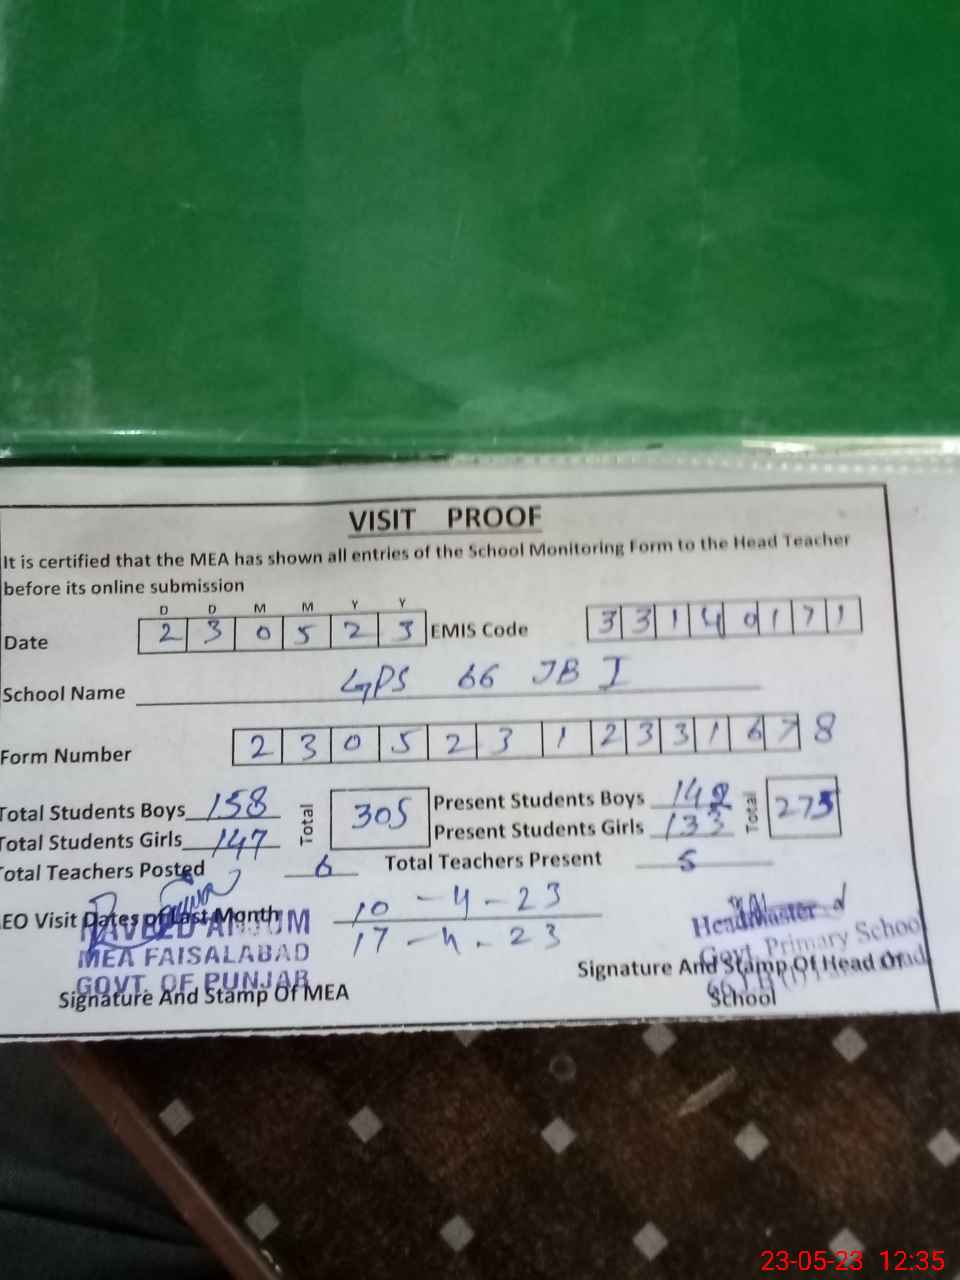 VISIT PROOF
It is certified that the MEA has shown all entries of the School Monitoring Form to the Head Teacher
before its online submission
D D M M Y Y
Date 2 3 0 5 2 3 EMIS Code 3 3 1 4 0 1 7 1
School Name GPS 66 JB I
Form Number 2 3 0 5 2 3 1 2 3 3 1 6 7 8
Total Students Boys 158 Total 305 Present Students Boys 142 Total 275
Total Students Girls 147 Present Students Girls 133
Total Teachers Posted 6 Total Teachers Present 5
AEO Visit Dates of Last Month 10-4-23
17-4-23
NAVEED ANJUM
MEA FAISALABAD
GOVT. OF PUNJAB
Signature And Stamp Of MEA
Headmaster
Govt. Primary School
Signature And Stamp Of Head Of
School
23-05-23 12:35